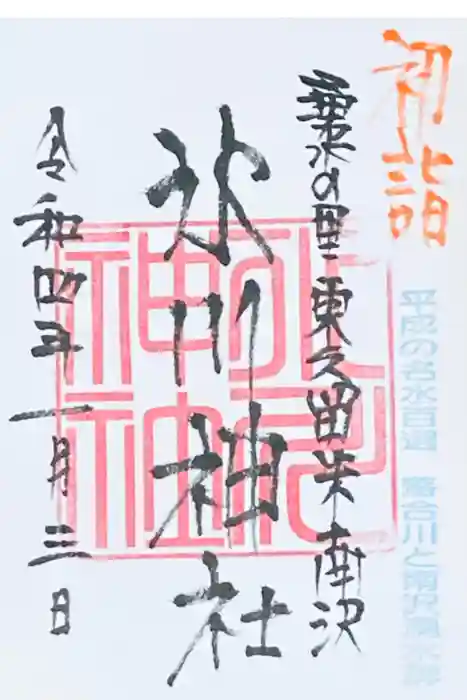 初詣
平成の名水百選 落合川と南沢湧水群
水の里 東久留米 南沢
氷川神社
氷川
神社
令和四年一月三日